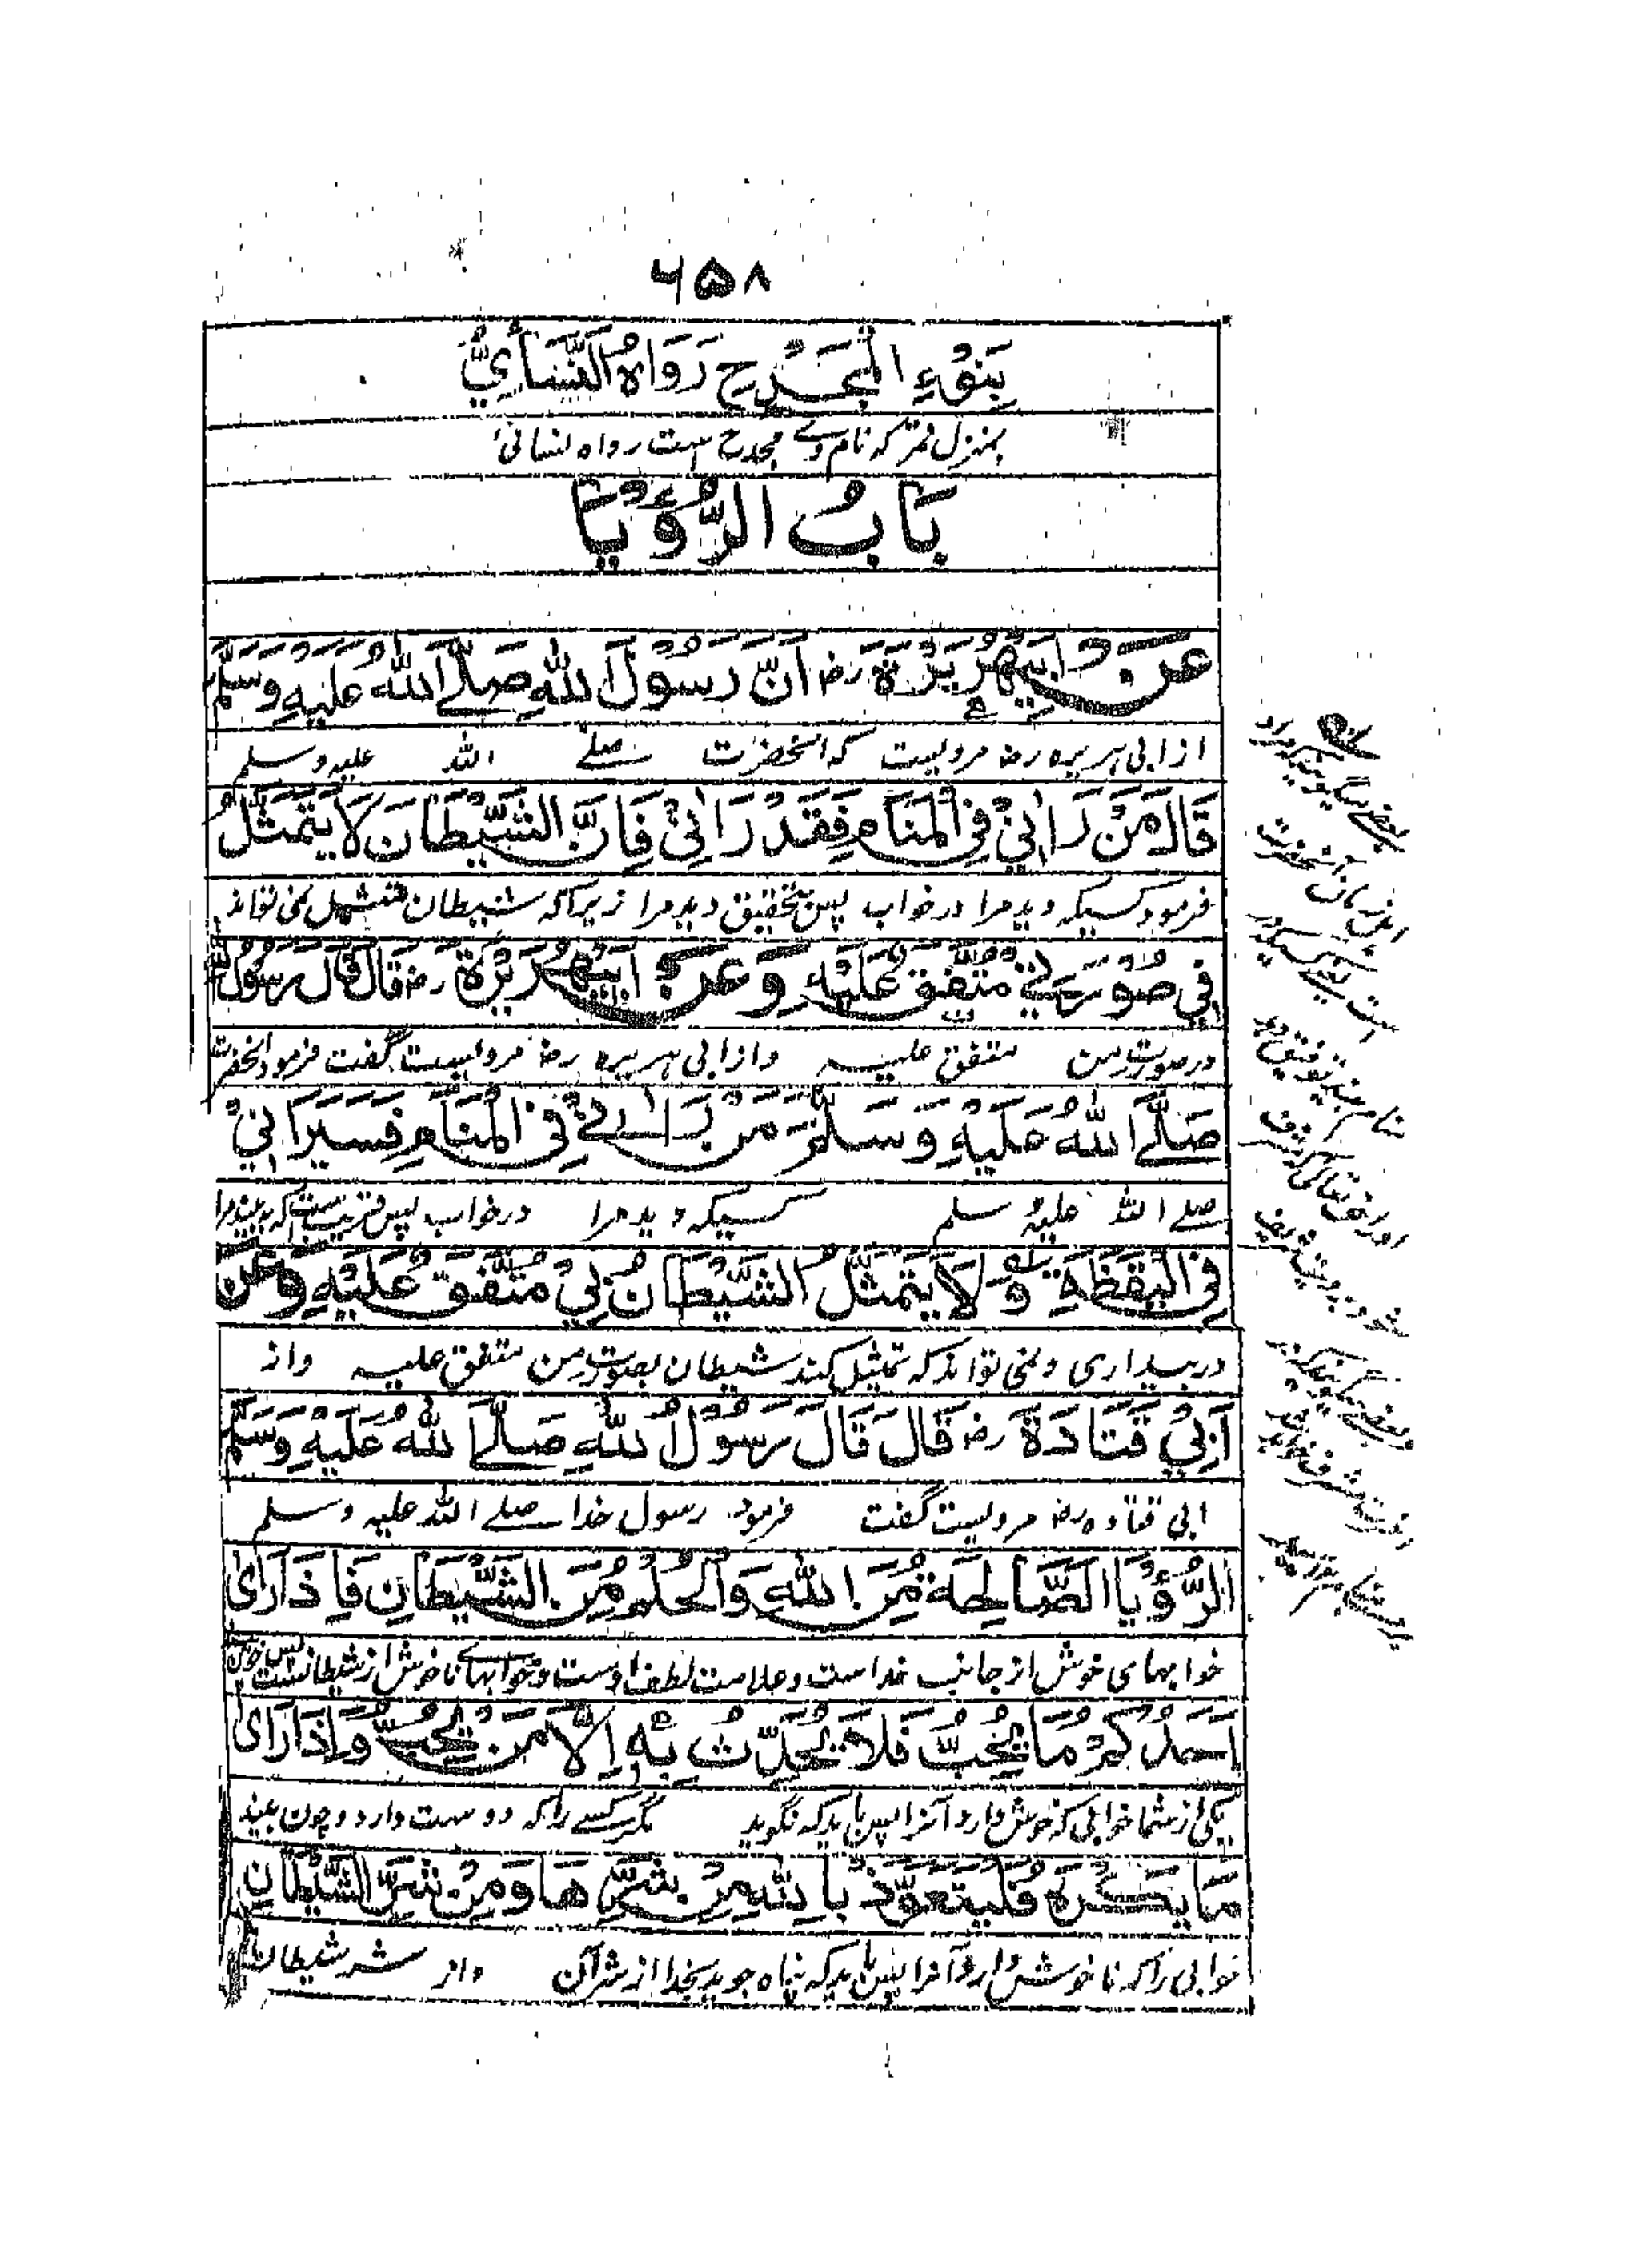 ۶۵۸
بِنَوْءِ الْمِجْدَحِ رَوَاهُ النَّسَائِيُّ
بمنزل قمر که نام وے مجدح است رواه نسائی
بَابُ الرُّؤْيَا
عَنْ اَبِيْهُرَيْرَةَ رض اَنَّ رَسُوْلَ اللّٰهِ صَلَّے اللّٰهُ عَلَيْهِ وَسَلَّمَ
از ابی ہریره رض مرویست که آنحضرت صلے الله علیہ وسلم
قَالَ مَنْ رَاٰنِيْ فِي الْمَنَامِ فَقَدْ رَاٰنِيْ فَاِنَّ الشَّيْطَانَ لَا يَتَمَثَّلُ
فرمود کسیکه دید مرا در خواب پس بتحقیق دید مرا زیراکه شیطان متمثل نمی تواند
فِي صُوْرَتِيْ مُتَّفَقٌ عَلَيْهِ وَعَنْ اَبِيْهُرَيْرَةَ رض قَالَ قَالَ رَسُوْلُ اللّٰهِ
در صورت من متفق علیہ و از ابی ہریره رض مرویست گفت فرمود آنحضرت
صَلَّے اللّٰهُ عَلَيْهِ وَسَلَّمَ مَنْ رَاٰنِيْ فِي الْمَنَامِ فَسَيَرَانِيْ
صلے الله علیہ وسلم کسیکه دید مرا در خواب پس قریبست که ببیند مرا
فِي الْيَقْظَةِ وَلَا يَتَمَثَّلُ الشَّيْطَانُ بِيْ مُتَّفَقٌ عَلَيْهِ وَعَنْ
در بیداری و نمی تواند که تمثیل کند شیطان بصورت من متفق علیہ و از
اَبِيْ قَتَادَةَ رض قَالَ قَالَ رَسُوْلُ اللّٰهِ صَلَّے اللّٰهُ عَلَيْهِ وَسَلَّمَ
ابی قتاده رض مرویست گفت فرمود رسول خدا صلے الله علیہ وسلم
الرُّؤْيَا الصَّالِحَةُ مِنَ اللّٰهِ وَالْحُلْمُ مِنَ الشَّيْطَانِ فَاِذَا رَاٰى
خوابہای خوش از جانب خداست و علامت لطف اوست و خوابہاے ناخوش از شیطانست پس چون
اَحَدُكُمْ مَا يُحِبُّ فَلَا يُحَدِّثْ بِهٖ اِلَّا مَنْ يُحِبُّ وَاِذَا رَاٰى
یکی از شما خوابی که خوش دارد آنرا پس باید که نگوید مگر کسے را که دوست دارد و چون بیند
مَا يَكْرَهُ فَلْيَتَعَوَّذْ بِاللّٰهِ مِنْ شَرِّهَا وَمِنْ شَرِّ الشَّيْطَانِ
خوابی را که ناخوش دارد آنرا پس باید که پناه جوید بخدا از شر آن و از شر شیطان